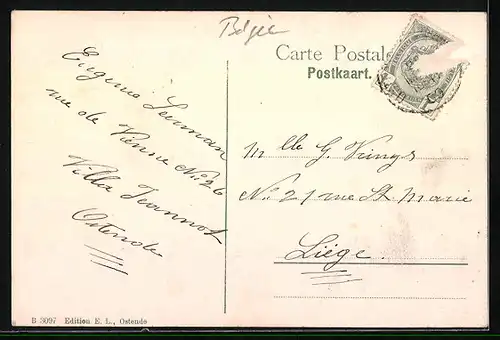 Belgie
Carte Postale
Postkaart.
Eugénie
rue de Vienne No 26
Villa Jeannot
Ostende
Mlle G. Vrings
No 21 rue St Marie
Liége
B 3097 Edition E. L., Ostende